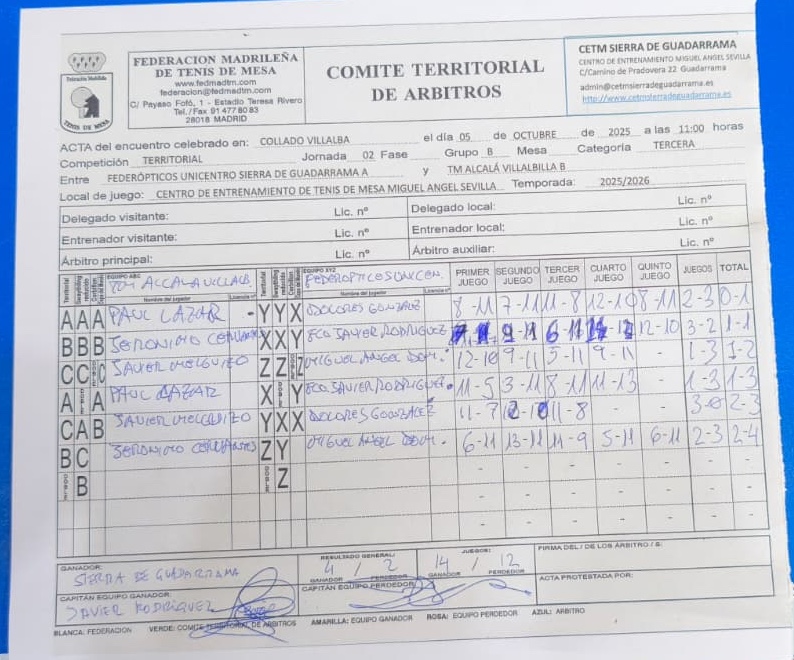 Federación Madrileña
TENIS DE MESA
FEDERACION MADRILEÑA
DE TENIS DE MESA
www.fedmadtm.com
federacion@fedmadtm.com
C/ Payaso Fofó, 1 - Estadio Teresa Rivero
Tel./Fax 91 477 80 83
28018 MADRID
COMITE TERRITORIAL
DE ARBITROS
CETM SIERRA DE GUADARRAMA
CENTRO DE ENTRENAMIENTO MIGUEL ANGEL SEVILLA
C/Camino de Pradovera 22 Guadarrama
admin@cetmsierradeguadarrama.es
http://www.cetmsierradeguadarrama.es
ACTA del encuentro celebrado en: COLLADO VILLALBA el día 05 de OCTUBRE de 2025 a las 11:00 horas
Competición TERRITORIAL Jornada 02 Fase Grupo B Mesa Categoría TERCERA
Entre FEDERÓPTICOS UNICENTRO SIERRA DE GUADARRAMA A y TM ALCALÁ VILLALBILLA B
Local de juego: CENTRO DE ENTRENAMIENTO DE TENIS DE MESA MIGUEL ANGEL SEVILLA Temporada: 2025/2026
Delegado visitante: Lic. nº Delegado local: Lic. nº
Entrenador visitante: Lic. nº Entrenador local: Lic. nº
Árbitro principal: Lic. nº Árbitro auxiliar: Lic. nº
Territorial EQUIPO ABC Nombre del jugador Licencia nº Territorial EQUIPO XYZ Nombre del jugador Licencia nº PRIMER JUEGO SEGUNDO JUEGO TERCER JUEGO CUARTO JUEGO QUINTO JUEGO JUEGOS TOTAL
A A A PAUL LAZAR - Y Y X DOLORES GONZALEZ 8-11 7-11 11-8 12-10 8-11 2-3 0-1
B B B X X Y FCO JAVIER RODRIGUEZ 9-11 6-11 12-10 3-2 1-1
C C C JAVIER MELGUIZO Z Z Z MIGUEL ANGEL DOM. 12-10 9-11 5-11 9-11 - 1-3 1-2
A A PAUL LAZAR X Y FCO JAVIER RODRIGUEZ 11-5 3-11 8-11 11-13 - 1-3 1-3
C A B JAVIER MELGUIZO Y X X DOLORES GONZALEZ 11-7 11-8 - - 3-0 2-3
B C JERONIMO CERVANTES Z Y MIGUEL ANGEL DOM. 6-11 13-11 11-9 5-11 6-11 2-3 2-4
B Z - - - - - - -
- - - - - - -
- - - - - - -
GANADOR: SIERRA DE GUADARRAMA
RESULTADO GENERAL: 4 / 2
GANADOR PERDEDOR
JUEGOS: 14 / 12
GANADOR PERDEDOR
FIRMA DEL / DE LOS ÁRBITRO / S:
CAPITÁN EQUIPO GANADOR: JAVIER RODRIGUEZ
CAPITÁN EQUIPO PERDEDOR:
ACTA PROTESTADA POR:
BLANCA: FEDERACION VERDE: COMITE TERRITORIAL DE ARBITROS AMARILLA: EQUIPO GANADOR ROSA: EQUIPO PERDEDOR AZUL: ARBITRO